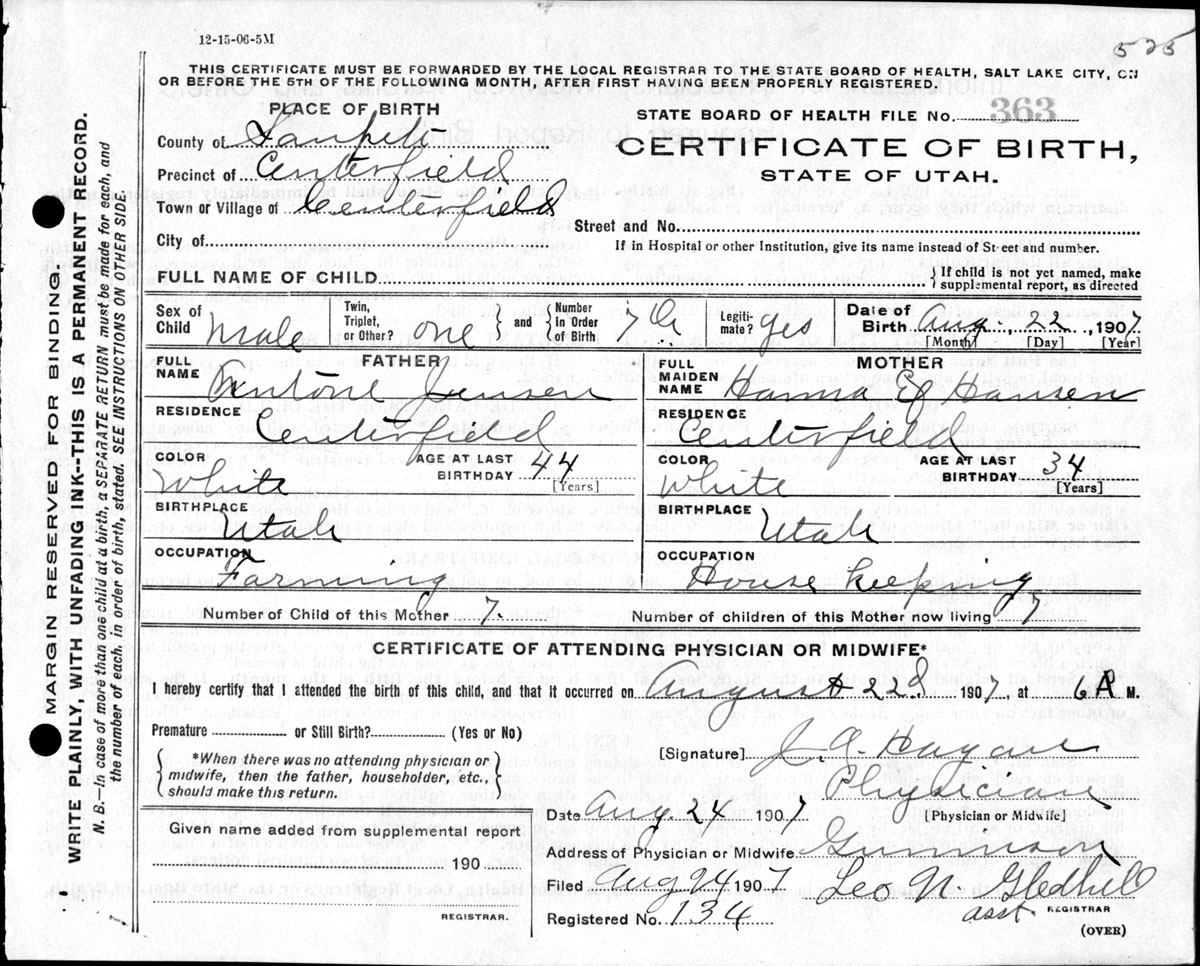 12-15-06-5M
525
THIS CERTIFICATE MUST BE FORWARDED BY THE LOCAL REGISTRAR TO THE STATE BOARD OF HEALTH, SALT LAKE CITY, ON
OR BEFORE THE 5TH OF THE FOLLOWING MONTH, AFTER FIRST HAVING BEEN PROPERLY REGISTERED.
PLACE OF BIRTH
County of Sanpete
Precinct of Centerfield
Town or Village of Centerfield
City of
STATE BOARD OF HEALTH FILE No. 363
CERTIFICATE OF BIRTH,
STATE OF UTAH.
Street and No.
If in Hospital or other Institution, give its name instead of Street and number.
FULL NAME OF CHILD
If child is not yet named, make
supplemental report, as directed
Sex of Child Male
Twin, Triplet, or Other? one and Number in Order of Birth 7th
Legitimate? yes
Date of Birth Aug. 22, 1907
[Month] [Day] [Year]
FATHER
FULL NAME Antone Jensen
RESIDENCE
Centerfield
COLOR White
AGE AT LAST BIRTHDAY 44
[Years]
BIRTHPLACE
Utah
OCCUPATION
Farming
MOTHER
FULL MAIDEN NAME Hanna E Hansen
RESIDENCE
Centerfield
COLOR White
AGE AT LAST BIRTHDAY 34
[Years]
BIRTHPLACE
Utah
OCCUPATION
House keeping
Number of Child of this Mother 7. Number of children of this Mother now living 7
CERTIFICATE OF ATTENDING PHYSICIAN OR MIDWIFE*
I hereby certify that I attended the birth of this child, and that it occurred on August 22d 1907, at 6 A M.
Premature or Still Birth? (Yes or No)
*When there was no attending physician or
midwife, then the father, householder, etc.,
should make this return.
[Signature] J. A. Hagan
Physician
[Physician or Midwife]
Date Aug 24 1907
Address of Physician or Midwife Gunnison
Given name added from supplemental report
190
REGISTRAR.
Filed Aug 24 1907 Leo N. Gledhill
asst. REGISTRAR
Registered No. 134
(OVER)
MARGIN RESERVED FOR BINDING.
WRITE PLAINLY, WITH UNFADING INK--THIS IS A PERMANENT RECORD.
N. B.—In case of more than one child at a birth, a SEPARATE RETURN must be made for each, and
the number of each. in order of birth, stated. SEE INSTRUCTIONS ON OTHER SIDE.